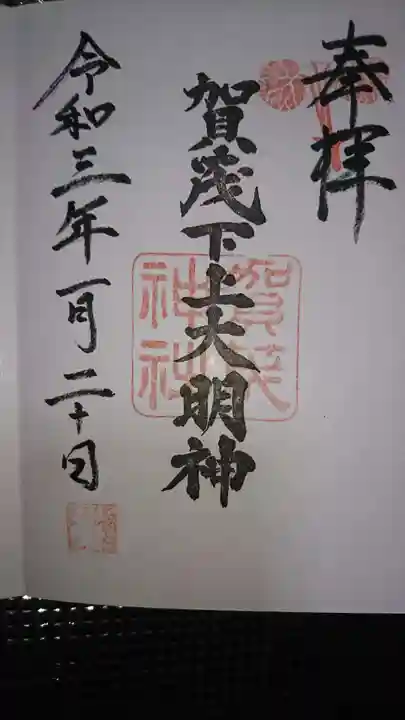 奉拝
賀茂下上大明神
賀茂神社
令和三年一月二十日